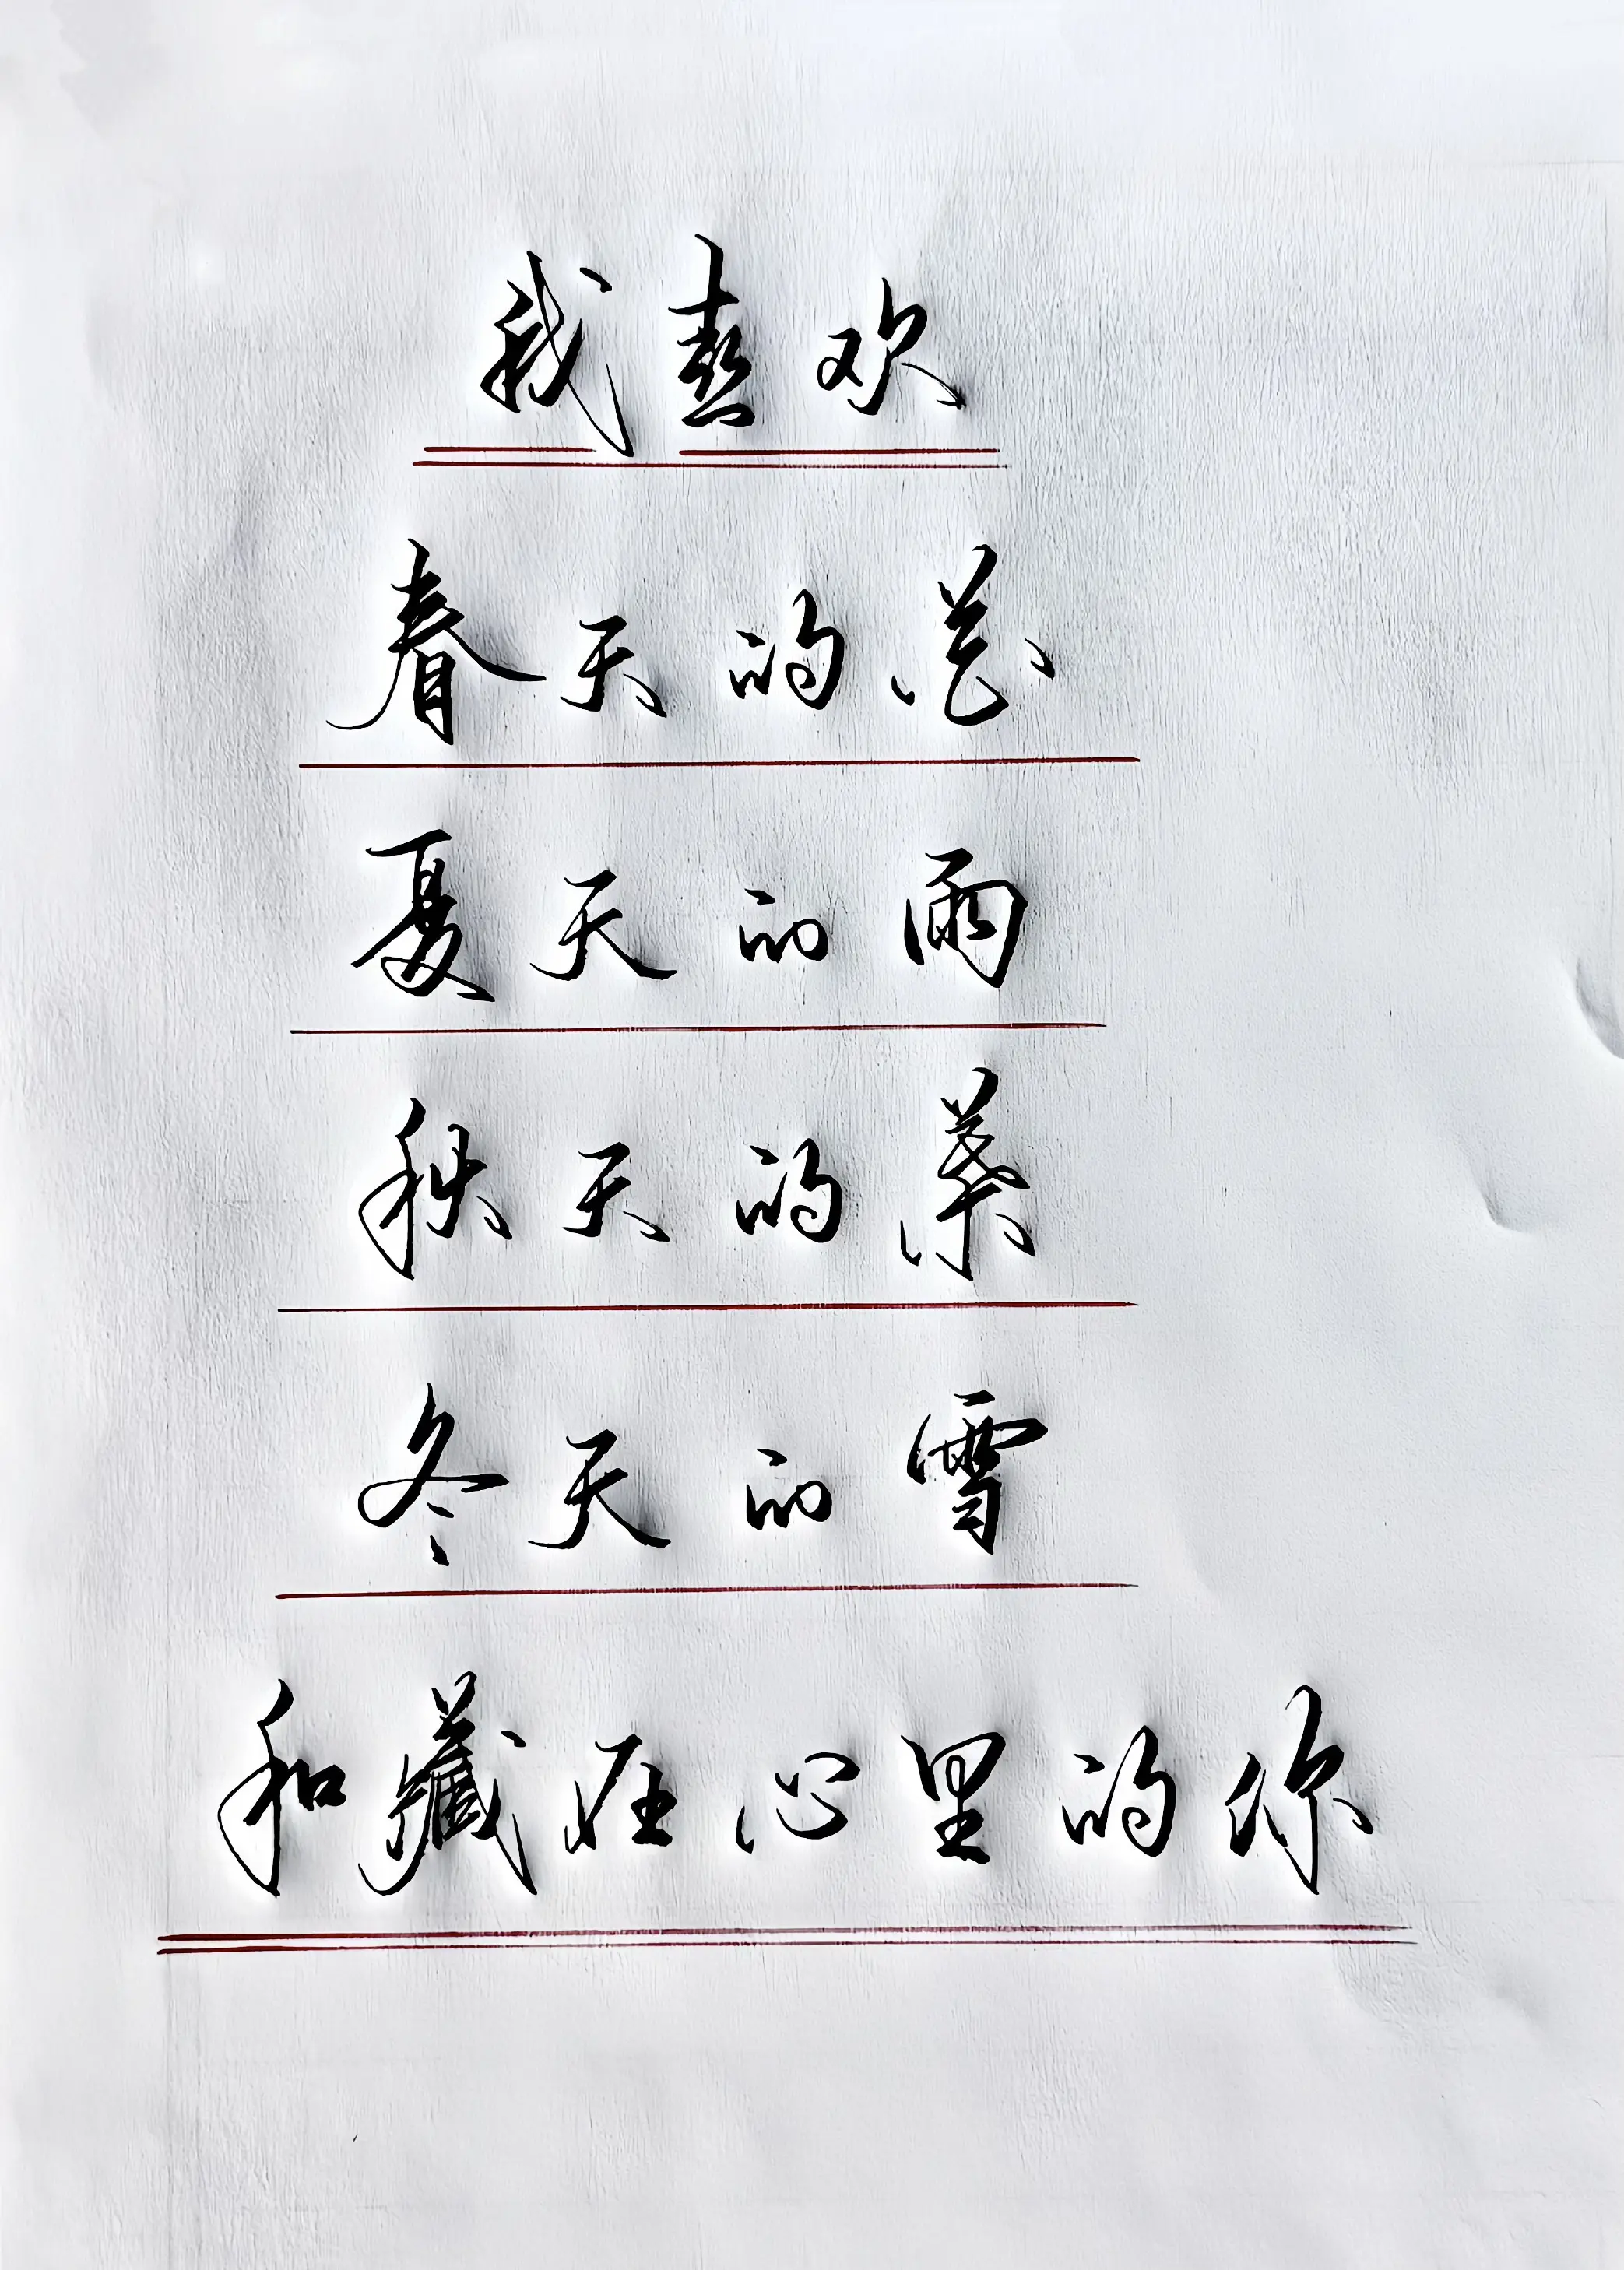 我喜欢
春天的花
夏天的雨
秋天的葉
冬天的雪
和藏在心里的你